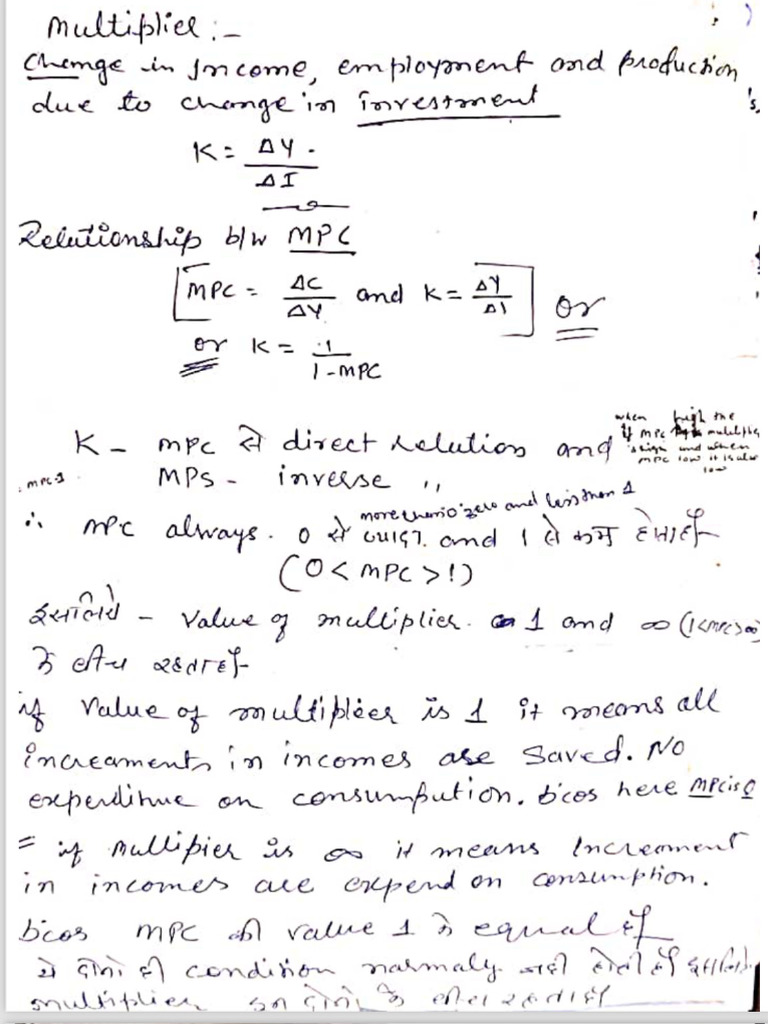 Multiplier :-
Change in Income, employment and production
due to change in investment
K = ΔY
ΔI
Relationship b/w MPC
[MPC = ΔC/ΔY and K = ΔY/ΔI] or
or K = 1/1-MPC
when high the
if MPC multiplier
is high and when
MPC low it is also
low
K - MPC से direct relation and
MPS - inverse "
more than 0 zero and less than 1
∴ MPC always 0 से ज्यादा and 1 से कम होता है
(0 < MPC > 1)
इसलिये - Value of multiplier 1 and ∞ (1<MPC>∞)
के बीच रहता है
if Value of multiplier is 1 it means all
increaments in incomes are saved. No
expenditure on consumpution. b'cos here MPC is 0
= if Mullipier is ∞ it means Increament
in incomes are expend on consumption.
b'cos MPC की value 1 के equal है
ये दोनो ही condition normaly नही होती है इसलिये
multiplier इन दोनो के बीच रहता है